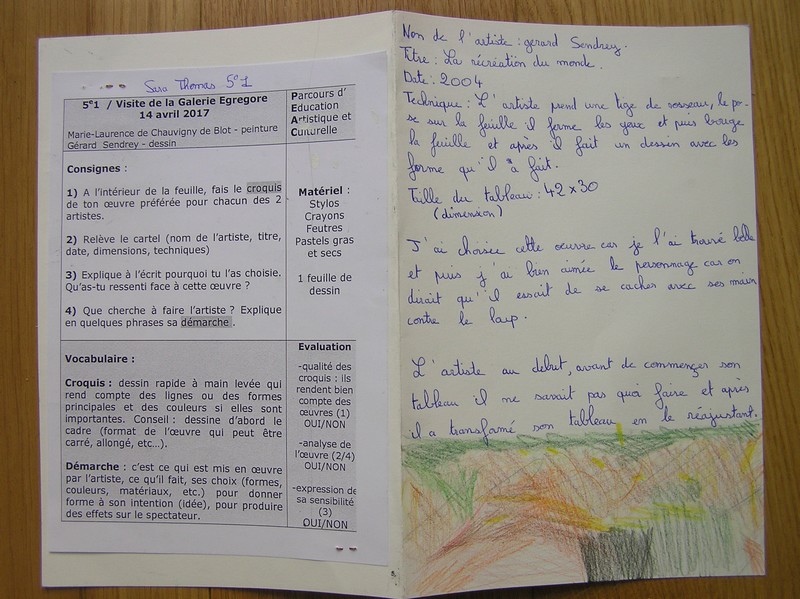 Sara Thomas 5°1
5°1 / Visite de la Galerie Egregore
14 avril 2017
Marie-Laurence de Chauvigny de Blot - peinture
Gérard Sendrey - dessin
Parcours d'
Education
Artistique et
Culturelle
Consignes :
1) A l'intérieur de la feuille, fais le croquis
de ton œuvre préférée pour chacun des 2
artistes.
2) Relève le cartel (nom de l'artiste, titre,
date, dimensions, techniques)
3) Explique à l'écrit pourquoi tu l'as choisie.
Qu'as-tu ressenti face à cette œuvre ?
4) Que cherche à faire l'artiste ? Explique
en quelques phrases sa démarche.
Matériel :
Stylos
Crayons
Feutres
Pastels gras
et secs
1 feuille de
dessin
Vocabulaire :
Croquis : dessin rapide à main levée qui
rend compte des lignes ou des formes
principales et des couleurs si elles sont
importantes. Conseil : dessine d'abord le
cadre (format de l'œuvre qui peut être
carré, allongé, etc...).
Démarche : c'est ce qui est mis en œuvre
par l'artiste, ce qu'il fait, ses choix (formes,
couleurs, matériaux, etc.) pour donner
forme à son intention (idée), pour produire
des effets sur le spectateur.
Evaluation
-qualité des
croquis : ils
rendent bien
compte des
œuvres (1)
OUI/NON
-analyse de
l'œuvre (2/4)
OUI/NON
-expression de
sa sensibilité
(3)
OUI/NON
Nom de l'artiste : gerard Sendrey.
Titre : La récréation du monde.
Date : 2004
Technique : L'artiste prend une tige de roseau, le po-
se sur la feuille il ferme les yeux et puis bouge
la feuille et après il fait un dessin avec les
forme qu'il à fait.
Taille du tableau : 42 x 30
(dimension)
J'ai choisie cette oeuvre car je l'ai trouvé belle
et puis j'ai bien aimée le personnage car on
dirait qu'il essait de se caches avec ses main
contre le loup.
L'artiste au debut, avant de commençer son
tableau il ne savait pas quoi faire et après
il a transformé son tableau en le réajustant.